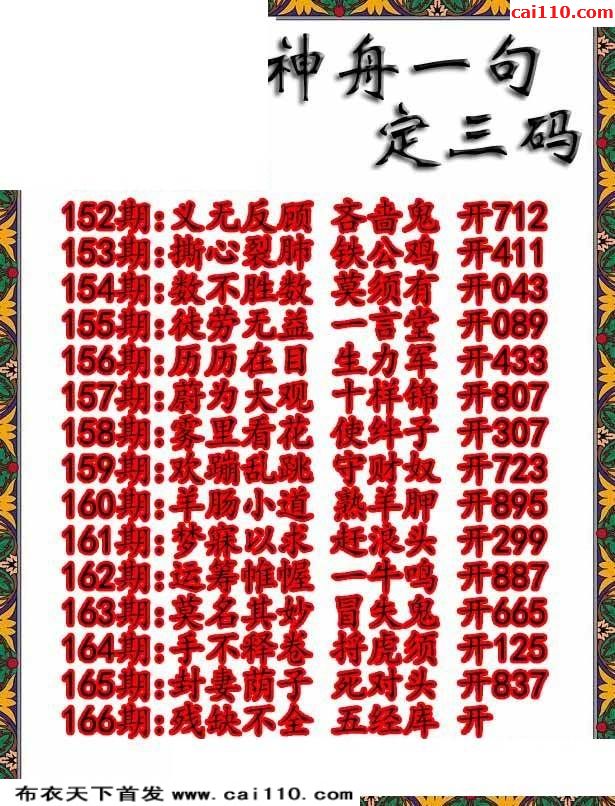 cai110.com
神舟一句
定三码
152期:义无反顾 吝啬鬼 开712
153期:撕心裂肺 铁公鸡 开411
154期:数不胜数 莫须有 开043
155期:徒劳无益 一言堂 开089
156期:历历在目 生力军 开433
157期:蔚为大观 十样锦 开807
158期:雾里看花 使绊子 开307
159期:欢蹦乱跳 守财奴 开723
160期:羊肠小道 熟羊胛 开895
161期:梦寐以求 赶浪头 开299
162期:运筹惟幄 一牛鸣 开887
163期:莫名其妙 冒失鬼 开665
164期:手不释卷 捋虎须 开125
165期:封妻荫子 死对头 开837
166期:残缺不全 五经库 开
布衣天下首发 www.cai110.com